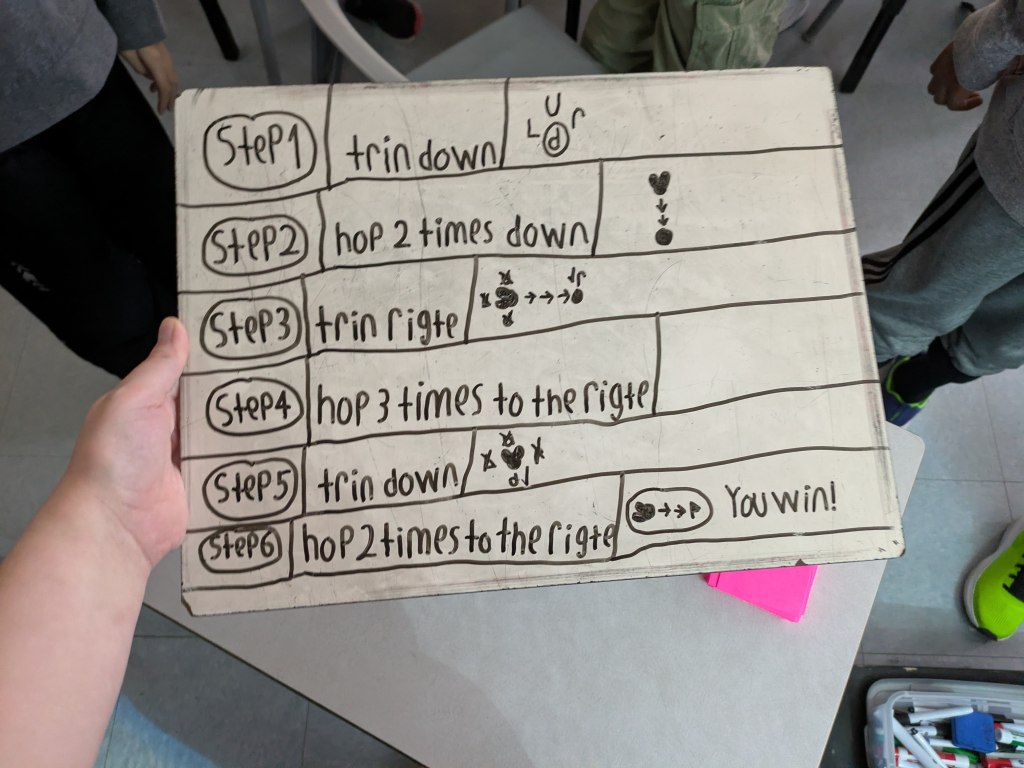 Step1 trin down L U r d
Step2 hop 2 times down
Step3 trin rigte
Step4 hop 3 times to the rigte
Step5 trin down
Step6 hop 2 times to the rigte You win!